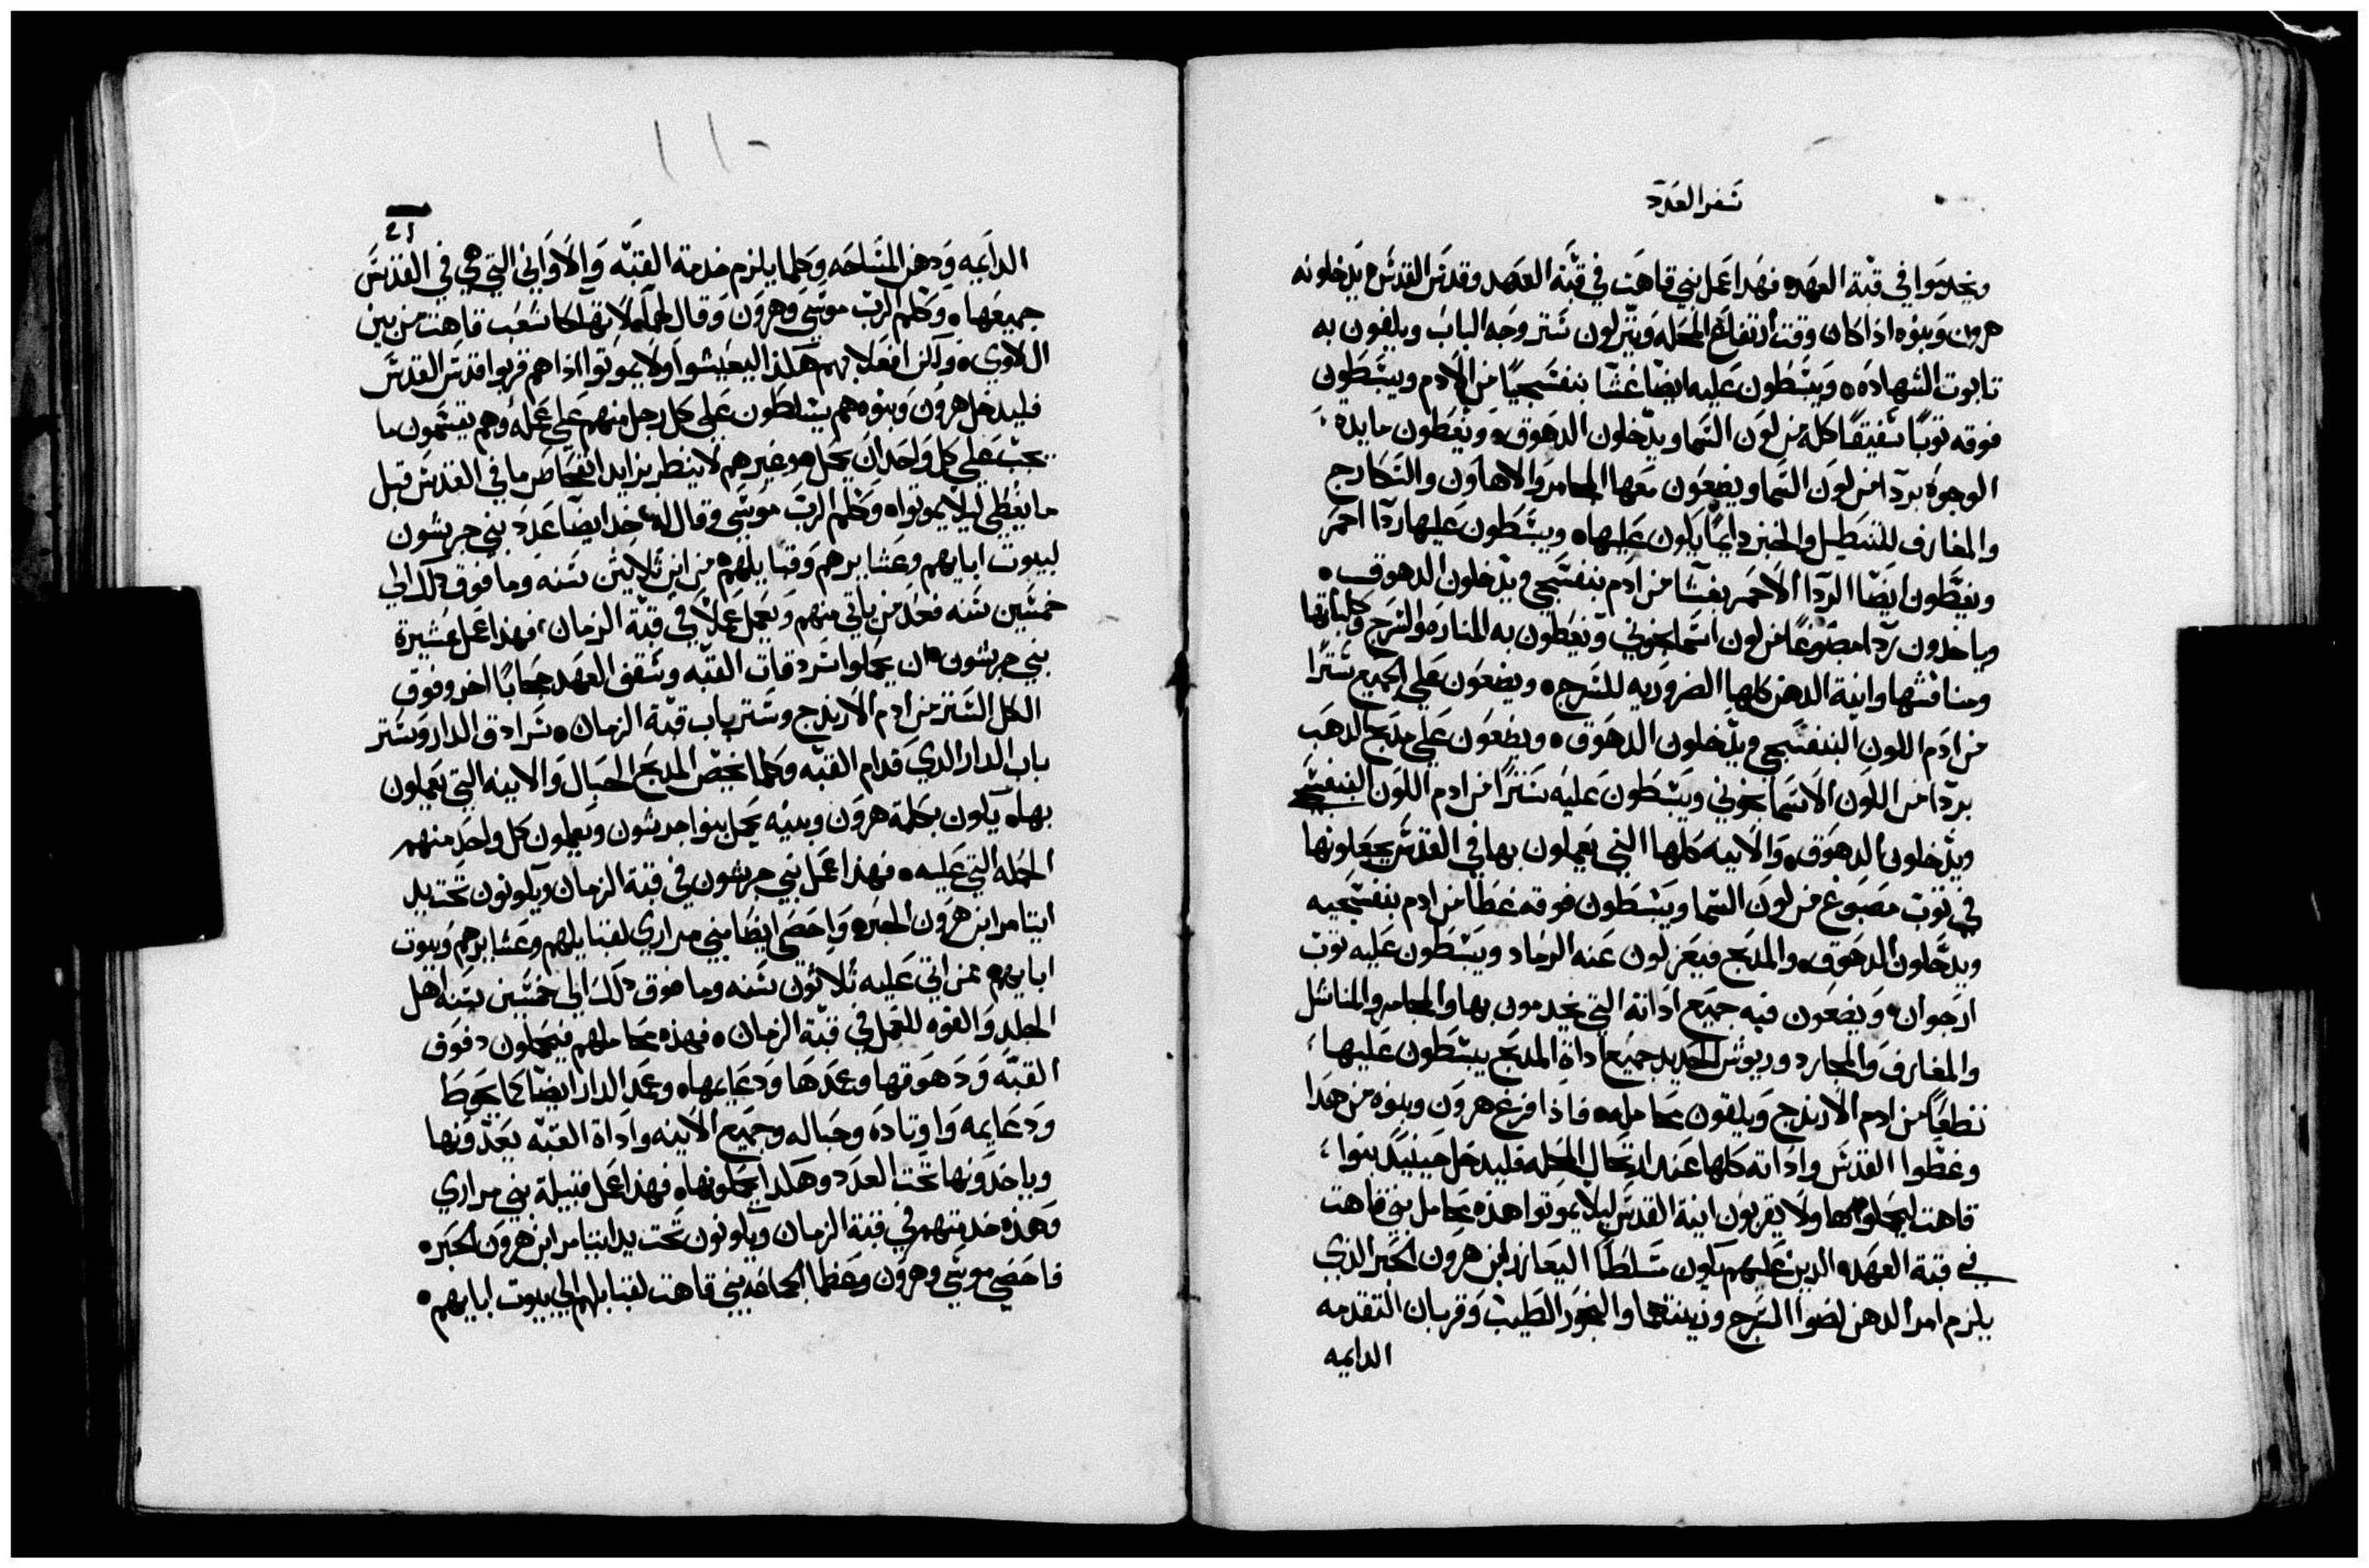 سفر العدد
ويخدموا في قبة العهد فهذا عمل بني قاهت في قبة العهد وقدس القدس يدخلونه
هرون وبنوه اذا كان وقت ارتفاع المحله وينزلون ستر وجه الباب ويلفون به
تابوت الشهاده ويبسطون عليه ايضا غشا بنفسجيا من الادم ويبسطون
فوقه ثوبا شقيقا كله من لون السما ويدخلون الدهوق ويغطون مايدة
الوجوه بردا من لون السما ويضعون معها المجامر والاهاون والسكارج
والمغارف للتسطيل والخبز دايما يكون عليها ويبسطون عليها ردا احمر
ويغطون ايضا الردا الاحمر بغشا من ادم بنفسجي ويدخلون الدهوق
وياخدون ردا مصبوغا من لون اسمانجوني ويغطون به المناره والسرج وكلباتها
ومنافسها وانية الدهن كلها الضروريه للسرج ويضعون علي الجميع سترا
من ادم اللون البنفسجي ويدخلون الدهوق ويضعون علي مدبح الدهب
بردا من اللون الاسمانجوني ويبسطون عليه سترا من ادم اللون البنفسجي
ويدخلون الدهوق والانيه كلها التي يعملون بها في القدس يجعلونها
في ثوب مصبوغ من لون السما ويبسطون فوقه غطا من ادم بنفسجيه
ويدخلون الدهوق والمدبح فيعزلون عنه الرماد ويبسطون عليه ثوب
ارجوان ويضعون فيه جميع اداته التي يخدمون بها والمجامر والمناشل
والمغارف والمجارد وريوش الحديد جميع اداة المدبح يبسطون عليها
نطعا من ادم الارندج ويلقون محامله فاذا فرغ هرون وبنوه من هدا
وغطوا القدس واداته كلها عند ارتحال المحله فليدخل حينيد بنوا
قاهت ليحملوها ولا يقربون انية القدس ليلا يموتوا هذه محامل بني قاهت
في قبة العهد الدين عليهم يكون مسلطا اليعازر ابن هرون الحبر الذي
يلزم امر الدهن لضوا السرج وزينتها والبخور الطيب وقربان التقدمه
الدايمه
21
الدايمه ودهن المساحه وكلما يلزم خدمة القبه والاواني التي هي في القدس
جميعها وكلم الرب موسي وهرون وقال لهما لا تهلكا شعب قاهت من بين
ال لاوي ولكن افعلا بهم هكذا ليعيشوا ولا يموتوا اذا هم قربوا قدس القدس
فليدخل هرون وبنوه هم يسلطون علي كل رجل منهم علي عمله وهم يقسمون ما
يجب علي كل واحد ان يحمل هو غيرهم لا ينظر يزايد الفحاص ما في القدس قبل
ما يغطي ليلا يموتوا وكلم الرب موسي وقال له خد ايضا عدد بني جرشون
لبيوت ابايهم وعشايرهم وقبايلهم من ابن ثلاثين سنه وما فوق دلك الي
خمسين سنه فعد من ياتي منهم ويعمل عملا في قبة الزمان فهذا عمل عشيرة
بني جرشون ان يحملوا سردقات القبه وسقف العهد حجابا اخر وفوق
الكل الستر من ادم الارندج وستر باب قبة الزمان سرادق الدار وستر
باب الدار الدي قدام القبه وكلما يخص المدبح الحبال والانيه التي يعملون
بها يكون بكلمة هرون وبنيه يحمل بنوا جرشون ويعملون كل واحد منهم
الحمله التي عليه فهذا عمل بني جرشون في قبة الزمان ويكونون تحت يد
ايتامر ابن هرون الحبر واحصي ايضا بني مراري لقبايلهم وعشايرهم وبيوت
ابايهم من اتي عليه ثلاثون سنه وما فوق دلك الي خمسين سنه اهل
الجلد والقوه للعمل في قبة الزمان فهذه محاملهم فيحملون دفوف
القبه ودهوقها وعمدها ودعايمها وعمد الدار ايضا كما يحوط
ودعايمه واوتاده وحباله وجميع الانيه واداة القبه يعدونها
وياخدونها تحت العدد وهكدا يحملونها فهذا عمل قبيلة بني مراري
وهذه خدمتهم في قبة الزمان ويكونون تحت يد ايتامر ابن هرون الحبر
فاحصي موسي وهرون وعظما الجماعه بني قاهت لقبايلهم الي بيوت ابايهم